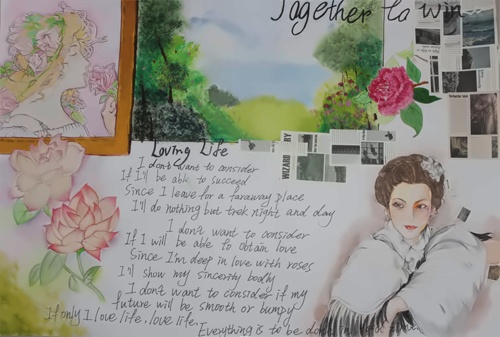 Together to win
WIZARD
RY
Loving Life
I don't want to consider
If I'll be able to succeed
Since I leave for a faraway place
I'll do nothing but trek night and day
I don't want to consider
If I will be able to obtain love
Since I'm deep in love with roses
I'll show my sincerity bodly
I don't want to consider if my
future will be smooth or bumpy
If only I love life. love life.
Everything is to be done in